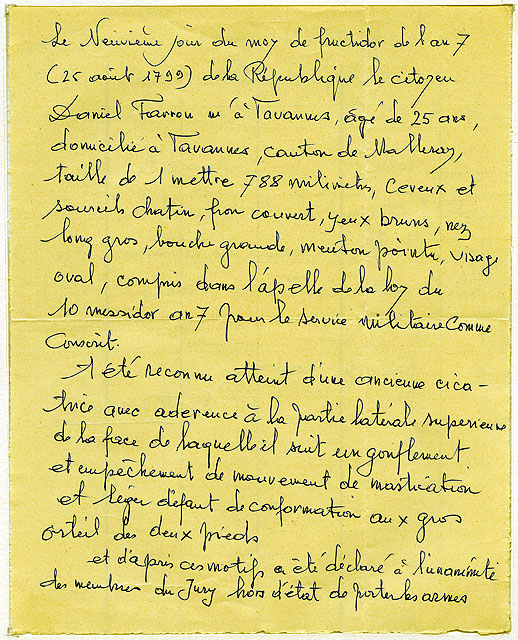 Le Neuvième jour du moy de fructidor de l'an 7
(25 août 1799) de la République le citoyen
Daniel Farron né à Tavannes, âgé de 25 ans,
domicilié à Tavannes, canton de Malleray,
taille de 1 mettre 788 milimètres, ceveux et
sourcils chatin, fron couvert, yeux bruns, nez
long gros, bouche grande, menton pointu, visage
oval, compris dans l'apelle de la loy du
10 messidor an 7 pour le service militaire Comme
Conscrit.
1 été reconnu atteint d'une ancienne cica-
trice avec aderence à la partie latérale superieure
de la face de laquelle il suit un gonflement
et empêchement de mouvement de mastication
et léger défaut de conformation aux gros
orteil des deux pieds
et d'après ces motifs a été déclaré à l'unanimité
des membres du Jury hors d'état de porter les armes